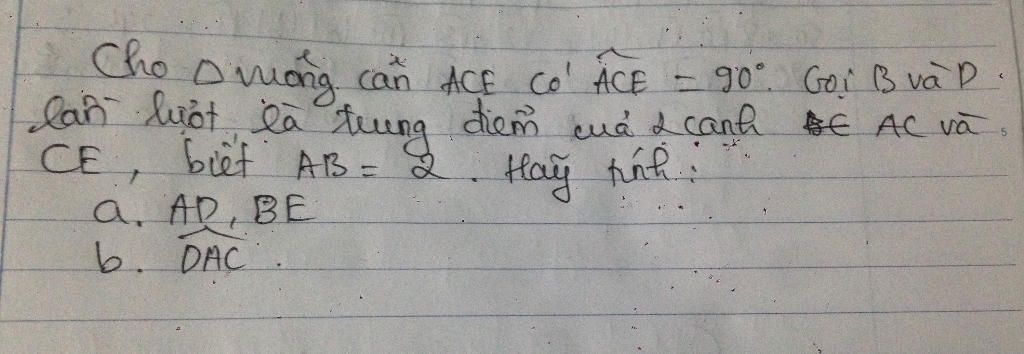 Cho △ vuông cân ACE có ACE = 90°. Gọi B và D
lần lượt là trung điểm của 2 cạnh AC và
CE, biết AB = 2. Hãy tính:
a. AD, BE
b. DAC.